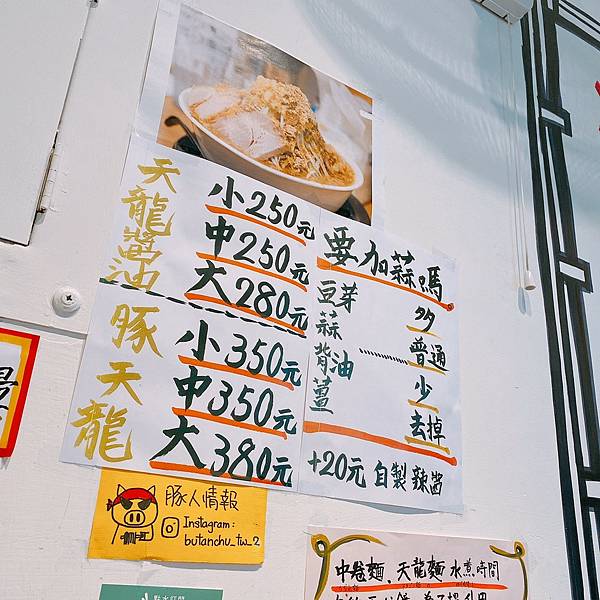 天龍醬油
小250元
中250元
大280元
豚天龍
小350元
中350元
大380元
要加蒜嗎
豆芽
蒜
背油
薑
多
普通
少
去掉
+20元 自製辣醬
豚人情報
Instagram:
butanchu_tw_2
中卷麵、天龍麵 水煮時間